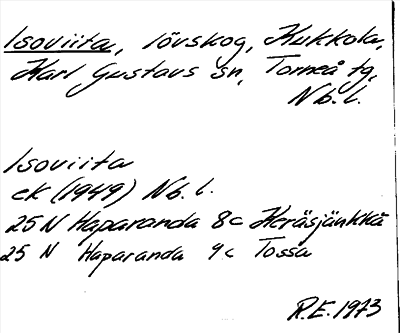 Isoviita, lövskog, Kukkola,
Karl Gustavs sn, Torneå tg,
Nb.l.
Isoviita
ek (1949) Nb.l.
25 N Haparanda 8c Keräsjänkkä
25 N Haparanda 9c Tossa
R.E. 1973